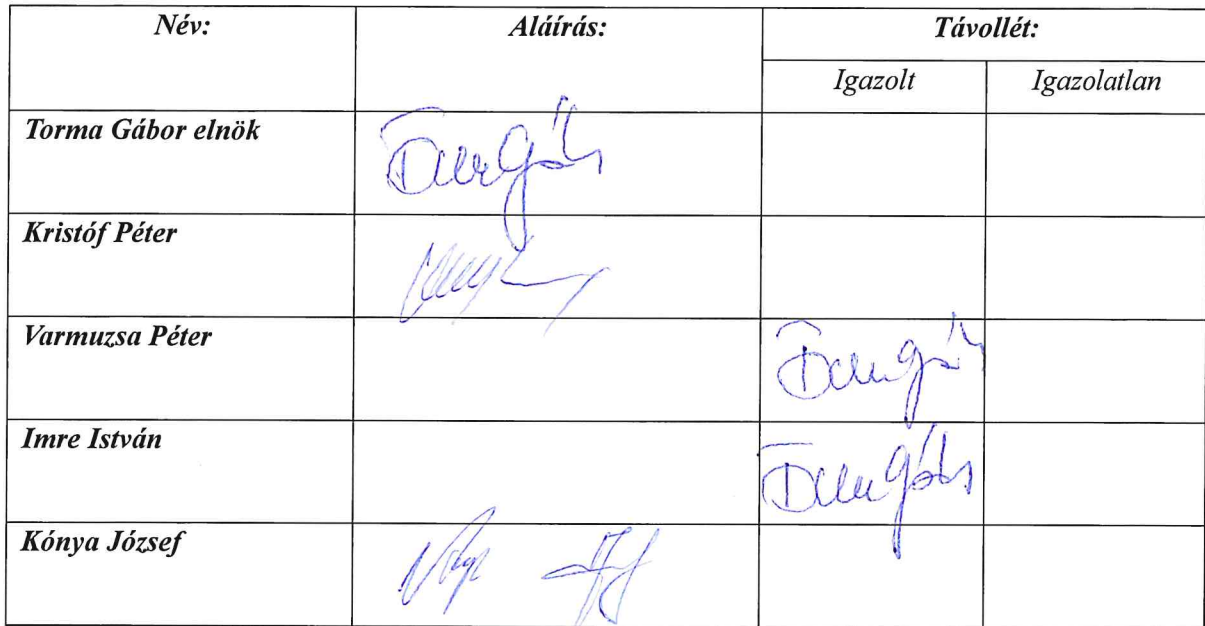 Név: Aláírás: Távollét:
Igazolt Igazolatlan
Torma Gábor elnök
Kristóf Péter
Varmuzsa Péter
Imre István
Kónya József